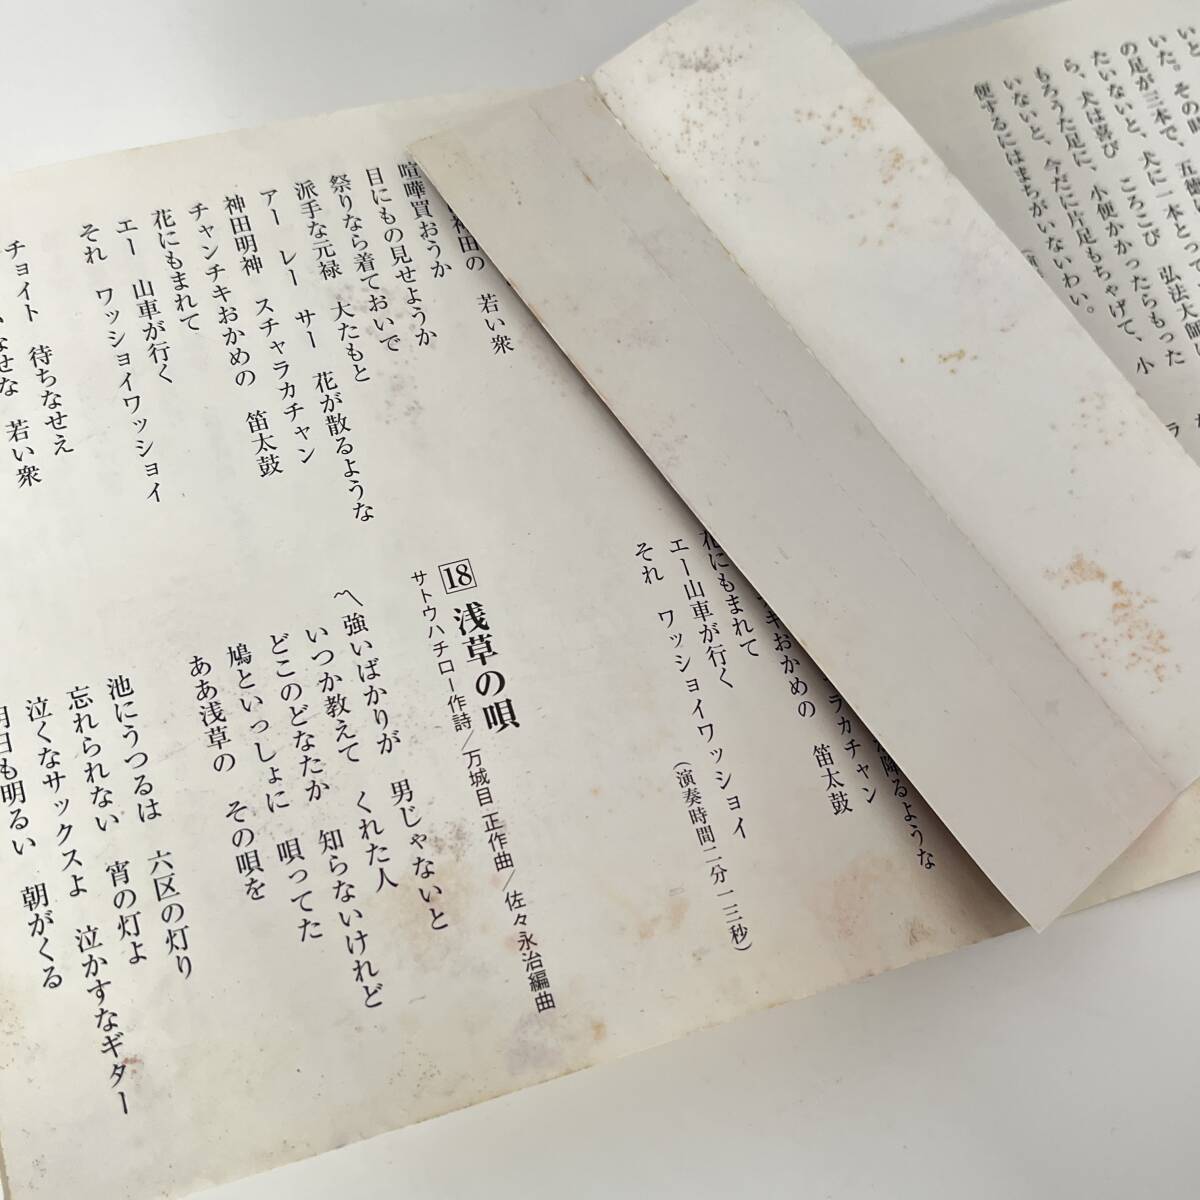 いと
いた。その時、五徳
の足が三本で、犬に一本とって
たいないと、ころこび 弘法大師
ら、犬は喜び
もろうた足に、小便かかったらもった
いないと、今だに片足もちゃげて、小
便するにはまちがいないわい。
神田の 若い衆
喧嘩買おうか
目にもの見せようか
祭りなら着ておいで
派手な元禄 大たもと
アー レー サー 花が散るような
神田明神 スチャラカチャン
チャンチキおかめの 笛太鼓
花にもまれて
エー 山車が行く
それ ワッショイワッショイ
チョイト 待ちなせえ
なせな 若い衆
降るような
ラカチャン
キおかめの 笛太鼓
花にもまれて
エー山車が行く
それ ワッショイワッショイ
(演奏時間二分一三秒)
18 浅草の唄
サトウハチロー作詩/万城目 正作曲/佐々永治編曲
〽強いばかりが 男じゃないと
いつか教えて くれた人
どこのどなたか 知らないけれど
鳩といっしょに 唄ってた
ああ浅草の その唄を
池にうつるは 六区の灯り
忘れられない 宵の灯よ
泣くなサックスよ 泣かすなギター
明日も明るい 朝がくる